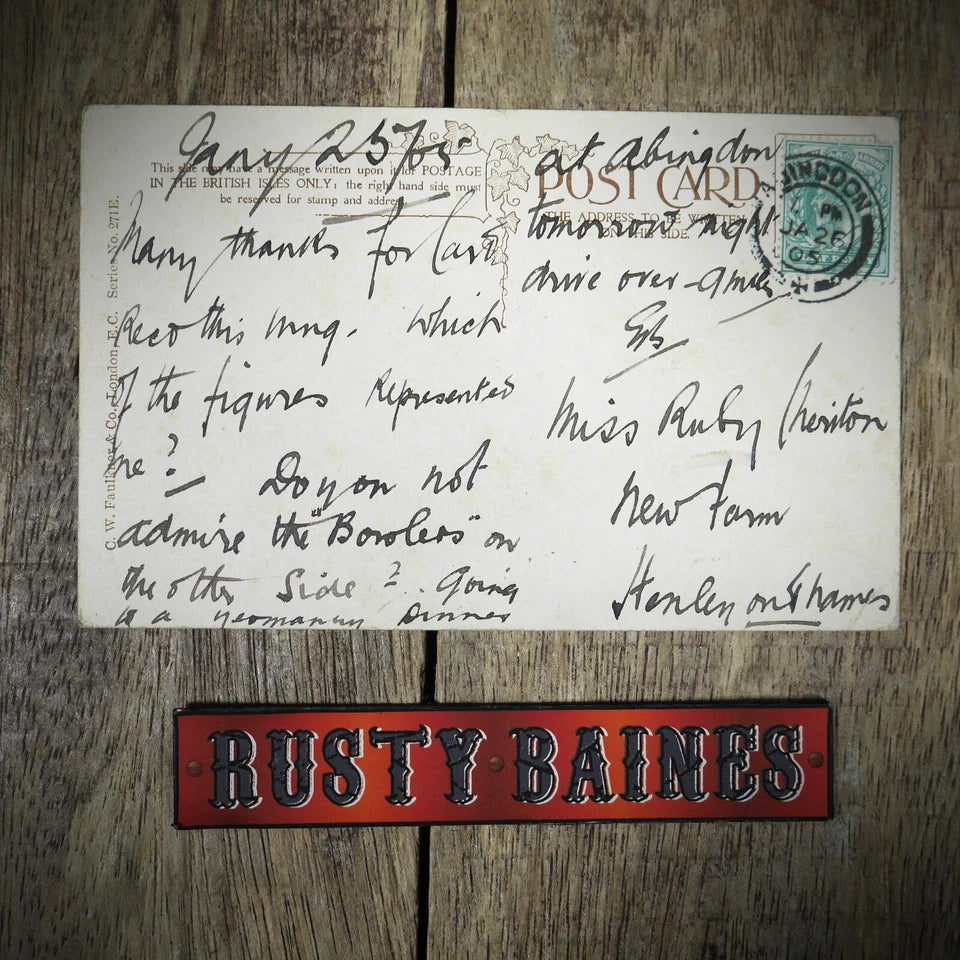 Jany 25th/05
This side may have a message written upon it for POSTAGE
IN THE BRITISH ISLES ONLY: the right hand side must
be reserved for stamp and address.
Many thanks for Card
Recd this mng. Which
of the figures Represented
me?
Do you not
admire the "Bowlers" on
the other Side? Going
to a yeomanry Dinner
at Abingdon
POST CARD
THE ADDRESS TO BE WRITTEN
ON THIS SIDE.
tomorrow night
drive over - 9 miles
Miss Ruby Cheriton
New Farm
Henley on Thames
ABINGDON
PM
JA 26
05
C. W. Faulkner & Co., London, E.C. Series No. 271E.
RUSTY BAINES